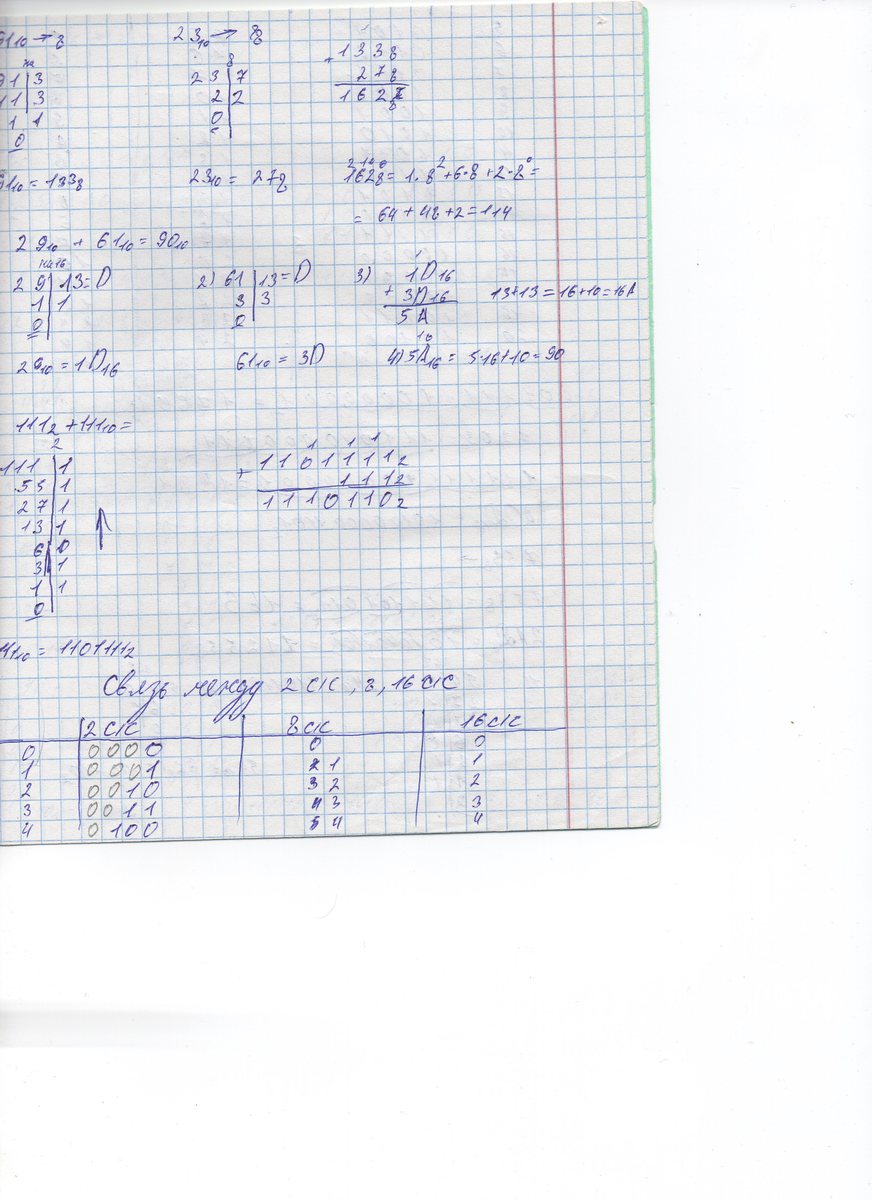 91₁₀ → 8
на
91 | 3
11 | 3
1 | 1
0
91₁₀ = 133₈
23₁₀ → 8
8
23 | 7
2 | 2
0
23₁₀ = 27₈
1
+ 133₈
27₈
162₈
2 1 0
162₈ = 1·8² + 6·8 + 2·8⁰ =
= 64 + 48 + 2 = 114
29₁₀ + 61₁₀ = 90₁₀
на 16
29 | 13 = D
1 | 1
0
29₁₀ = 1D₁₆
2) 61 | 13 = D
3 | 3
0
61₁₀ = 3D
3)
1
1D₁₆
+ 3D₁₆
5A
13 + 13 = 16 + 10 = 16A
10
4) 5A₁₆ = 5·16 + 10 = 90
111₂ + 111₁₀ =
2
111 | 1
55 | 1
27 | 1
13 | 1
6 | 0
3 | 1
1 | 1
0
1 1 1
+ 1101111₂
111₂
1110110₂
111₁₀ = 1101111₂
Связь между 2 с/с, 8, 16 с/с
2 с/с | 8 с/с | 16 с/с
0 | 0000 | 0 | 0
1 | 0001 | 1 | 1
2 | 0010 | 2 | 2
3 | 0011 | 3 | 3
4 | 0100 | 4 | 4